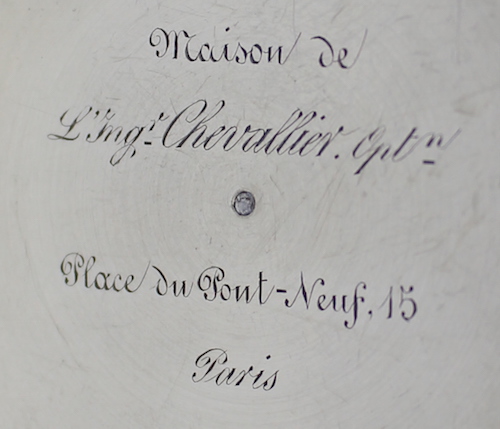 Maison de
L'Ingr. Chevallier. Optn
Place du Pont-Neuf, 15
Paris